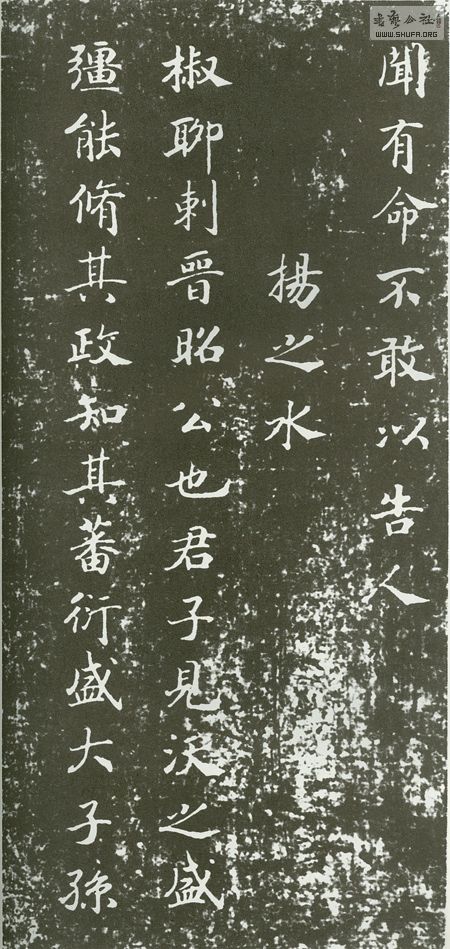 聞有命不敢以告人
揚之水
椒聊刺晉昭公也君子見沃之盛
彊能脩其政知其蕃衍盛大子孫
書藝公社
WWW.SHUFA.ORG